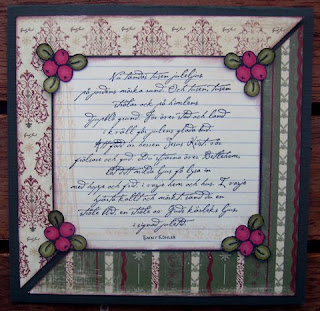 Nu tändas tusen juleljus
på jordens mörka rund. Och tusen, tusen
stråla ock på himlens
djupblå grund. För över stad och land
i kväll går julens glada bud
Att född är herren Jesus Krist, vår
frälsare och gud. Du stjärna över Betlehem,
låt ditt milda ljus få lysa in
med hopp och frid i varje hem och hus. I varje
hjärta kallt och mörkt sänd du en
stråle blid, en stråle av Guds kärleks ljus
i signad juletid.
Emmy Köhler